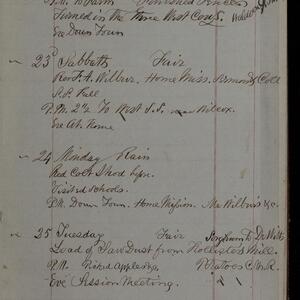 P.M. to Farm Finished Husking
Turned in the Three West Cows.
Eve Down Town
23d Sabbath Fair
Rev. F. A. Wilbur, Home Miss. Sermon & Coll
S.S. Full
P.M. 2½ To West S.S. Wilcox.
Eve At Home
24 Monday Rain
Red Colt Shod
Visited Schools.
P.M. Down Town. Home Mission. Mr Wilbur's &c.
25 Tuesday Fair to DeWitt
Load of Saw Dust from Hollister's Mill.
P.M. Picked Apples &c. Potatoes
Eve' Session Meeting.